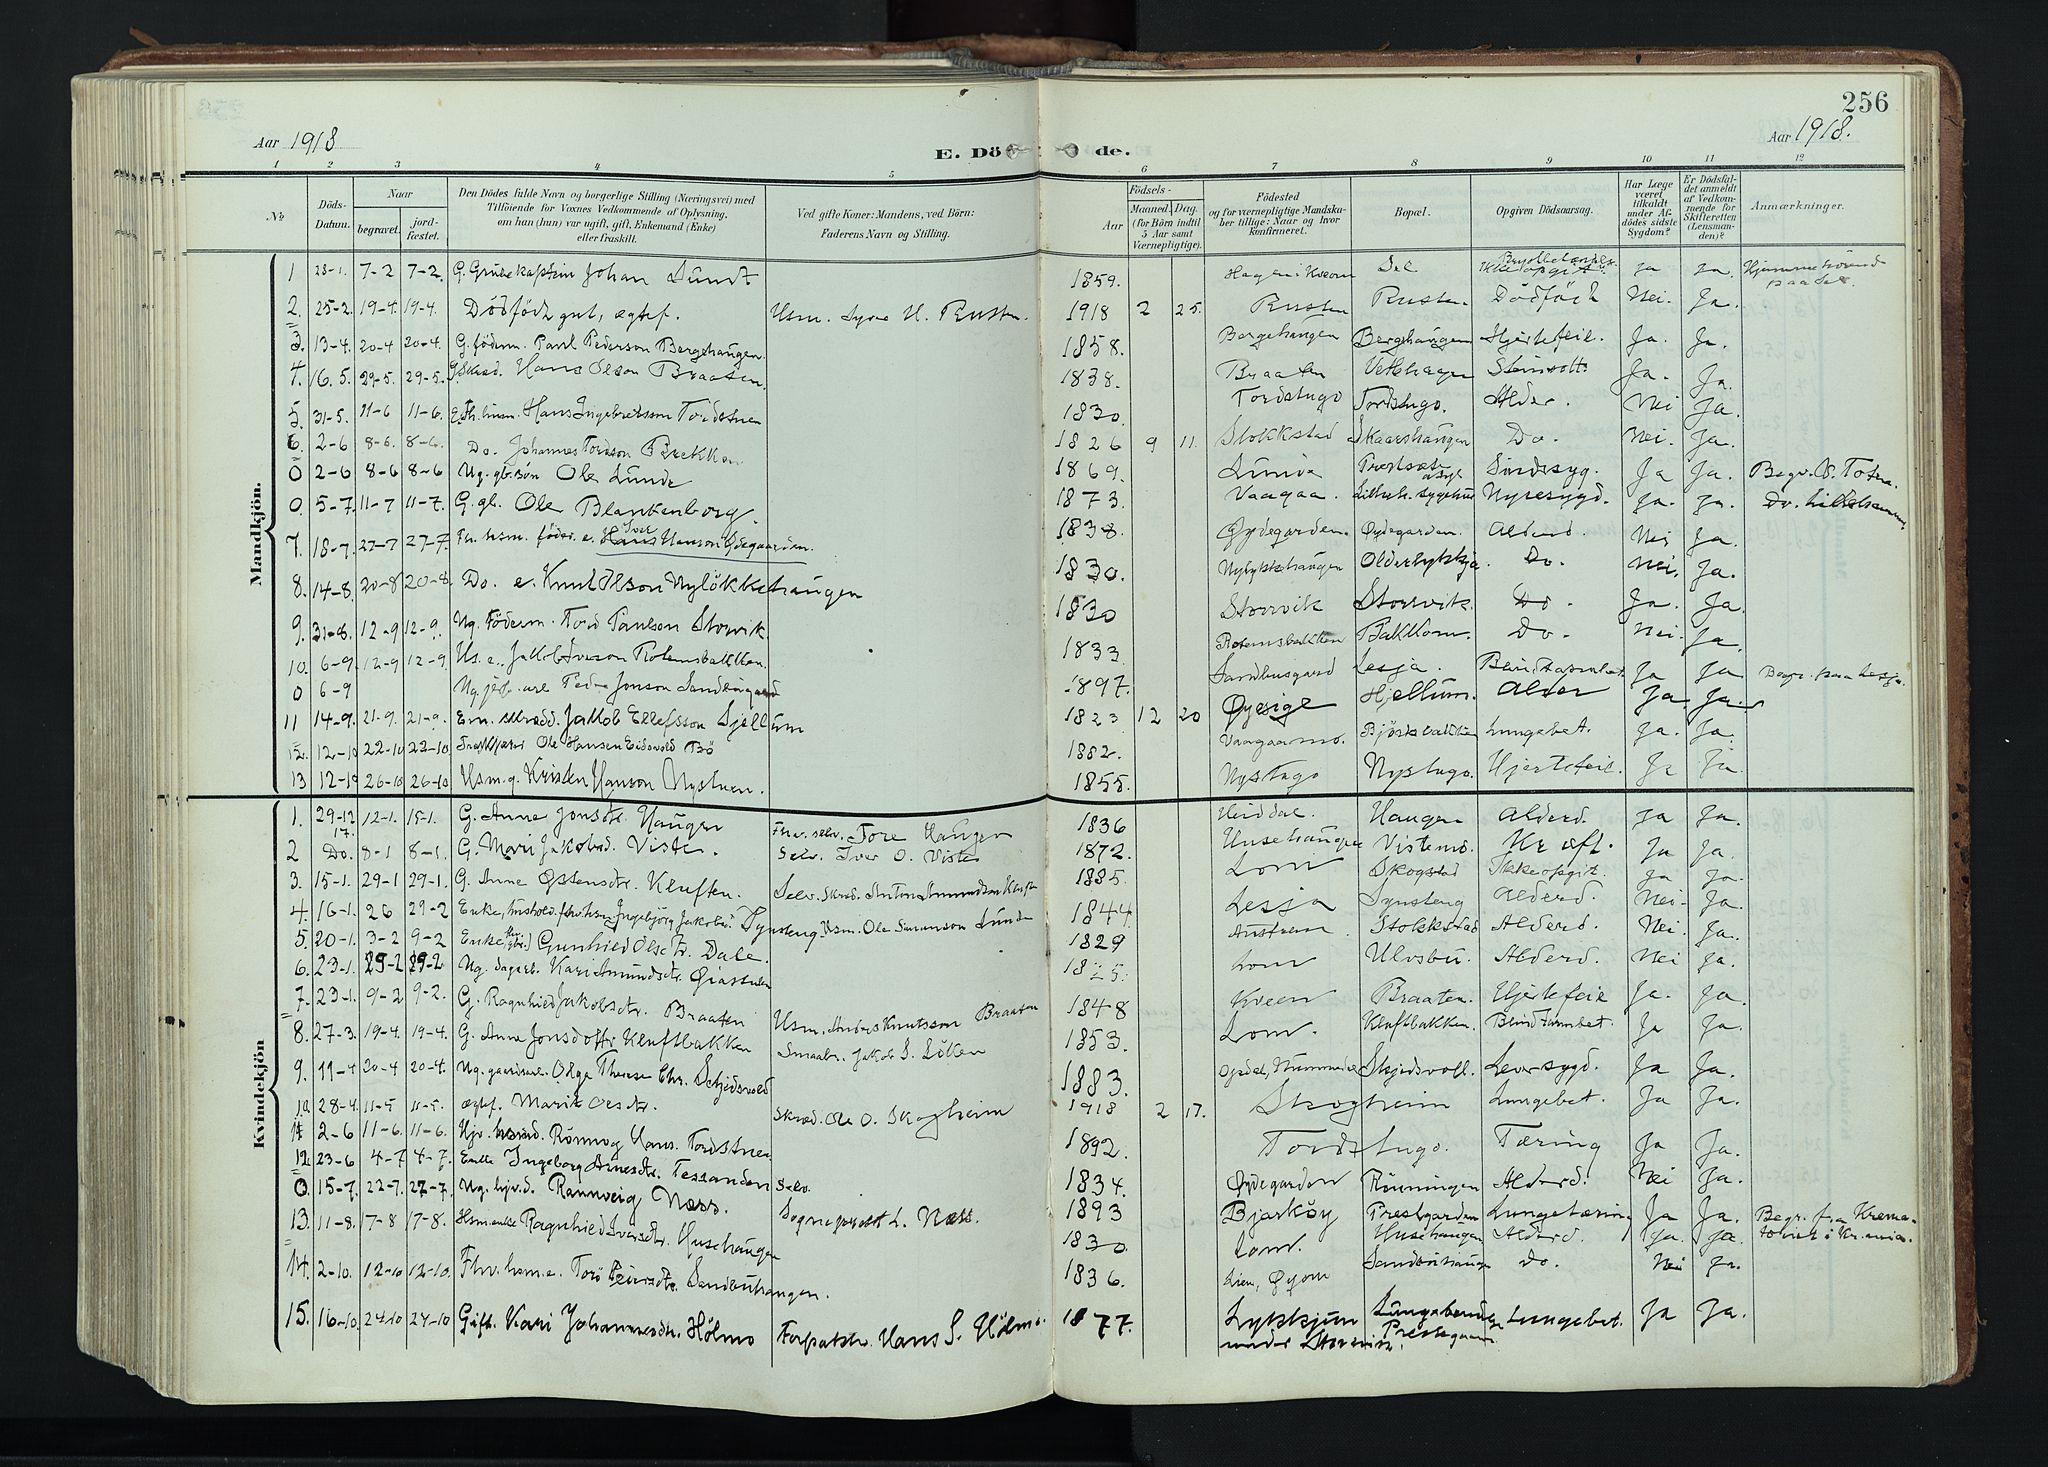 256
Aar 1918
Aar 1918.
E. Döde.
1 2 3 4 5 6 7 8 9 10 11 12
No
Döds-Datum.
Naar begravet. jordfæstet.
Den Dödes fulde Navn og borgerlige Stilling (Næringsvei) med Tilföiende for Voxnes Vedkommende af Oplysning, om han (hun) var ugift, gift, Enkemand (Enke) eller fraskilt.
Ved gifte Koner: Mandens, ved Börn: Faderens Navn og Stilling.
Födsels-
Aar
Maaned. Dag. (for Börn indtil 5 Aar samt Værnepligtige).
Födested og for værnepligtige Mandskaber tillige: Naar og hvor konfirmeret.
Bopæl.
Opgiven Dödsaarsag.
Har Læge været tilkaldt under Afdödes sidste Sygdom?
Er Dödsfaldet anmeldt af Vedkommende for Skifteretten (Lensmanden)?
Anmærkninger.
Mandkjön.
1 28-1. 7-2 7-2. G. Grubekaptein Johan Lundt 1859. Hagen i Kveom Sel Ikke opgit. Ja Ja. Hjemmehörende paa Sel.
2. 25-2. 19-4. 19-4. Dödfödt gut, ægtef. Usm. Syver H. Rusten. 1918 2 25. Rusten Rusten. Dödfödt Nei. Ja.
3. 13-4. 20-4 20-4. G. föderm. Paul Pederson Bergehaugen. 1858. Bergehaugen Bergehaugen Hjertefeil. Ja. Ja.
4. 16.5. 29-5. 29-5. Hans Olson Braaten. 1838. Braaten Stensott. Ja. Ja.
5. 31-5. 11-6 11-6. Hans Ingebretsson Tordstuen 1830. Tordstugo Tordstugo. Alder. Nei Ja.
6. 2-6 8-6. 8-6. Do. Johannes Tordson Brekken 1826 9 11. Stokkstad Skaarshaugen Do. Nei. Ja.
0 2-6 8-6 8-6 Ug. gb. sön Ole Lunde 1869. Lunde Sindssyg. Ja Ja. Begr. V. Toten.
0. 5-7. 11-7 11-7. G. gb. Ole Blankenborg. 1873. Vaagaa. Lilleh. sygehus Nyresygd. Ja. Ja. Do. Lillehammer
7. 18-7. 27-7 27-7. Fh. hsm. föder. e. Hans Iver Hanson Ödegaarden. 1838. Öydegarden. Öydegarden. Alderd. Nei Ja.
8. 14-8. 20-8 20-8. Do. e. Knut Olson Nylökkehaugen 1830. Nylykkehaugen Olderlykkja. Do. Nei. Ja.
9. 31-8. 12-9 12-9. Ug. Föderm. Tord Paulson Storvik 1830 Storvik Storvik. Do. Ja. Ja.
10. 6-9. 12-9 12-9. Us. e. Jakob Iverson Rolemsbakken. 1833 Rolemsbakken Bakkom. Do. Nei. Ja.
0 6-9 Ug. Peder Jonson Sandbugaard 1897. Sandbusgaard Lesja. Ja Ja Begr. paa Lesja.
11 14-9. 21-9. 21-9. Em. skrædd. Jakob Ellefsson Sjellum 1823 12 20 Öyesige Hjellum. Alder Ja Ja
12. 12-10 22-10 22-10. Ole Hansen Eidsvold Bö 1882. Vaagaamo. Bjørkebakken Lungebet. Ja. Ja.
13 12-10 26-10 26-10. Usm. g. Kristen Hanson Nystuen. 1855. Nystugo Nystugo. Hjertefeil. Ja Ja.
Kvindekjön
1. 29-12 17. 12-1. 15-1. G. Anne Jonsdtr. Haugen Fhv. selv. Tore Haugen 1836 Heiddal. Haugen Alderd. Ja Ja.
2 Do. 8-1 8-1. G. Mari Jakobsd. Viste. Selv. Iver O. Viste 1872. Husehaugen Vistemo. Kræft. Ja Ja.
3. 15-1. 29-1 29-1. G. Anne Östensdtr. Kluften. Selv. Skræd. Anton Amundson Kluften 1885. Lom Skogstad Ikke opgit. Ja Ja
4. 16-1. 26 29-2 Ingebjörg Jakobsd. Synsteng Usm. Ole Simonson Lunde 1844 Lesja Synsteng Alderd. Nei. Ja.
5. 20-1. 3-2 9-2 Enke Gunhild Olsdtr. Dale. 1829 Austrem Stokkstad Alderd. Nei. Ja.
6. 23-1. 29-2 29-2 Ug. Kari Amundsdtr. 1825. Lom Ulvsbu. Alderd. Nei Ja.
7. 23-1. 9-2 9-2. G. Ragnhild Jakobsdtr. Braaten Usm. Anders Knutsson Braaten 1848 Kveen Braaten. Hjertefeil Ja. Ja.
8. 27-3. 19-4. 19-4. G. Anne Jonsdotter Kluftbakken Smaabr. Jakob S. Löken 1853. Lom. Kluftbakken. Blindtarmbet. Ja Ja.
9. 11-4 20-4 20-4. Olga Therese Chr. Skjedsvold 1883. Skjedsvoll. Leversygd. Ja Ja.
10 28-4. 11-5 11-5. ægtef. Marit Olesdtr. Skræd. Ole O. Skogheim 1918 2 17. Skogheim Lungebet. Ja Ja.
11 2-6 11-6. 11-6. Rönnog Hans. Tordstuen 1892. Tordstugo. Tæring Ja Ja.
12. 23-6 4-7 4-7. Enke Ingeborg Arnesdtr. Tessanden Selv. 1834. Öydegarden Rönningen Alderd. Nei Ja.
0. 15-7. 22-7. 27-7. Ug. hjv.d. Rannveig Næss. Sogneprest L. Næss. 1893 Bjarköy Prestgarden Lungetæring Ja Ja. Begr. fra Krematoriet i Kr.ania.
13. 11-8. 17-8 17-8. Hsm.enke Ragnhild Iversdtr. Husehaugen 1830. Lom. Husehaugen Alderd. Ja. Ja.
14. 2-10. 12-10 12-10. Fhv. hsm. e. Torö Peersdtr. Sandbuhaugen. 1836. Lien, Öyom Sandbuhaugen Do. Nei Ja.
15. 16-10. 24-10 24-10 Gift. Kari Johannesdtr. Hölmo Forpaktr. Hans S. Hölmo. 1877. Lykkjun under Storvik. Prestegaard Lungebet. Ja Ja.